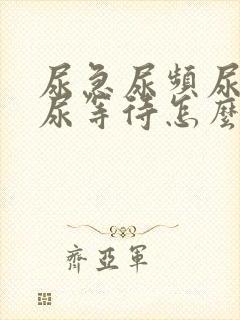 尿急尿頻尿
尿等待怎麼
齊亞軍